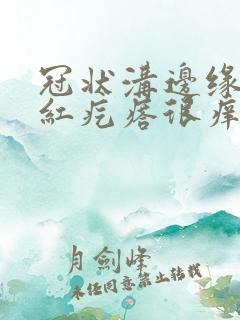 冠状溝邊缘
紅疙瘩很痒
月劍峰
未经同意禁止转载